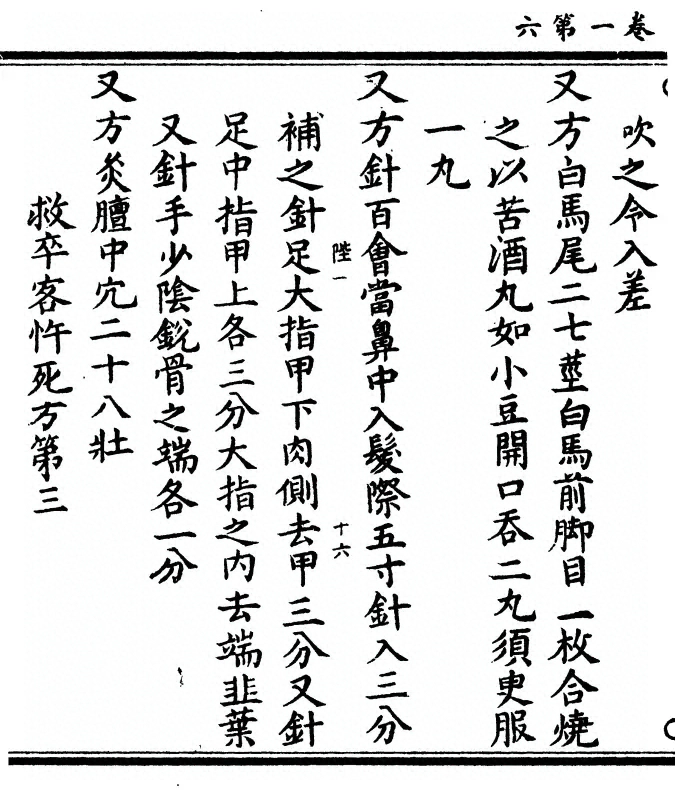 卷一第六
吹之令入差
又方白馬尾二七莖白馬前脚目一枚合燒
之以苦酒丸如小豆開口吞二丸須臾服
一丸
又方針百會當鼻中入髮際五寸針入三分
陸一
十六
補之針足大指甲下肉側去甲三分又針
足中指甲上各三分大指之內去端韭葉
又針手少陰銳骨之端各一分
又方灸膻中穴二十八壯
救卒客忤死方第三